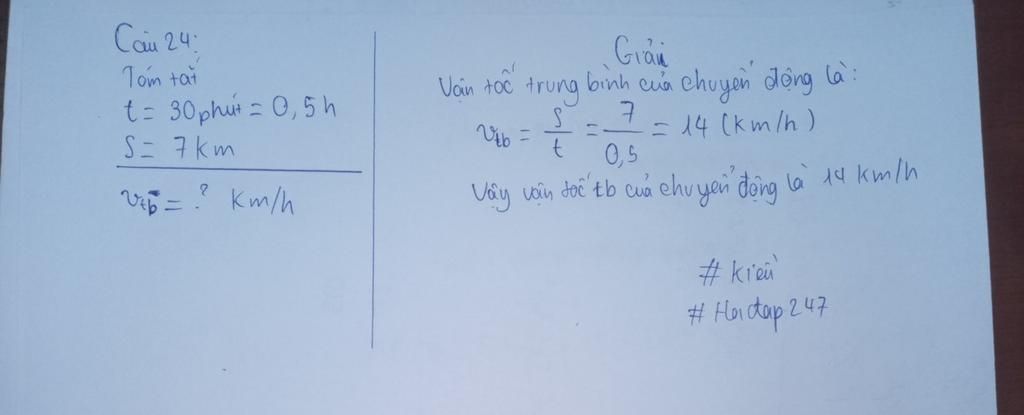 Câu 24:
Tóm tắt
t = 30 phút = 0,5h
S = 7 km
vtb = ? Km/h
Giải
Vận tốc trung bình của chuyển động là:
vtb = S/t = 7/0,5 = 14 (km/h)
Vậy vận tốc tb của chuyển động là 14 km/h
# kiều
# Hoidap247